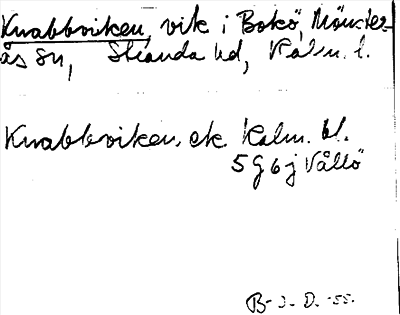 Knabbviken, vik i Bokö, Mönster-
ås sn, Stranda hd, Kalm. l.
Knabbviken. ek. Kalm. bl.
5 G 6 j Vållö
B- J. D. -55.